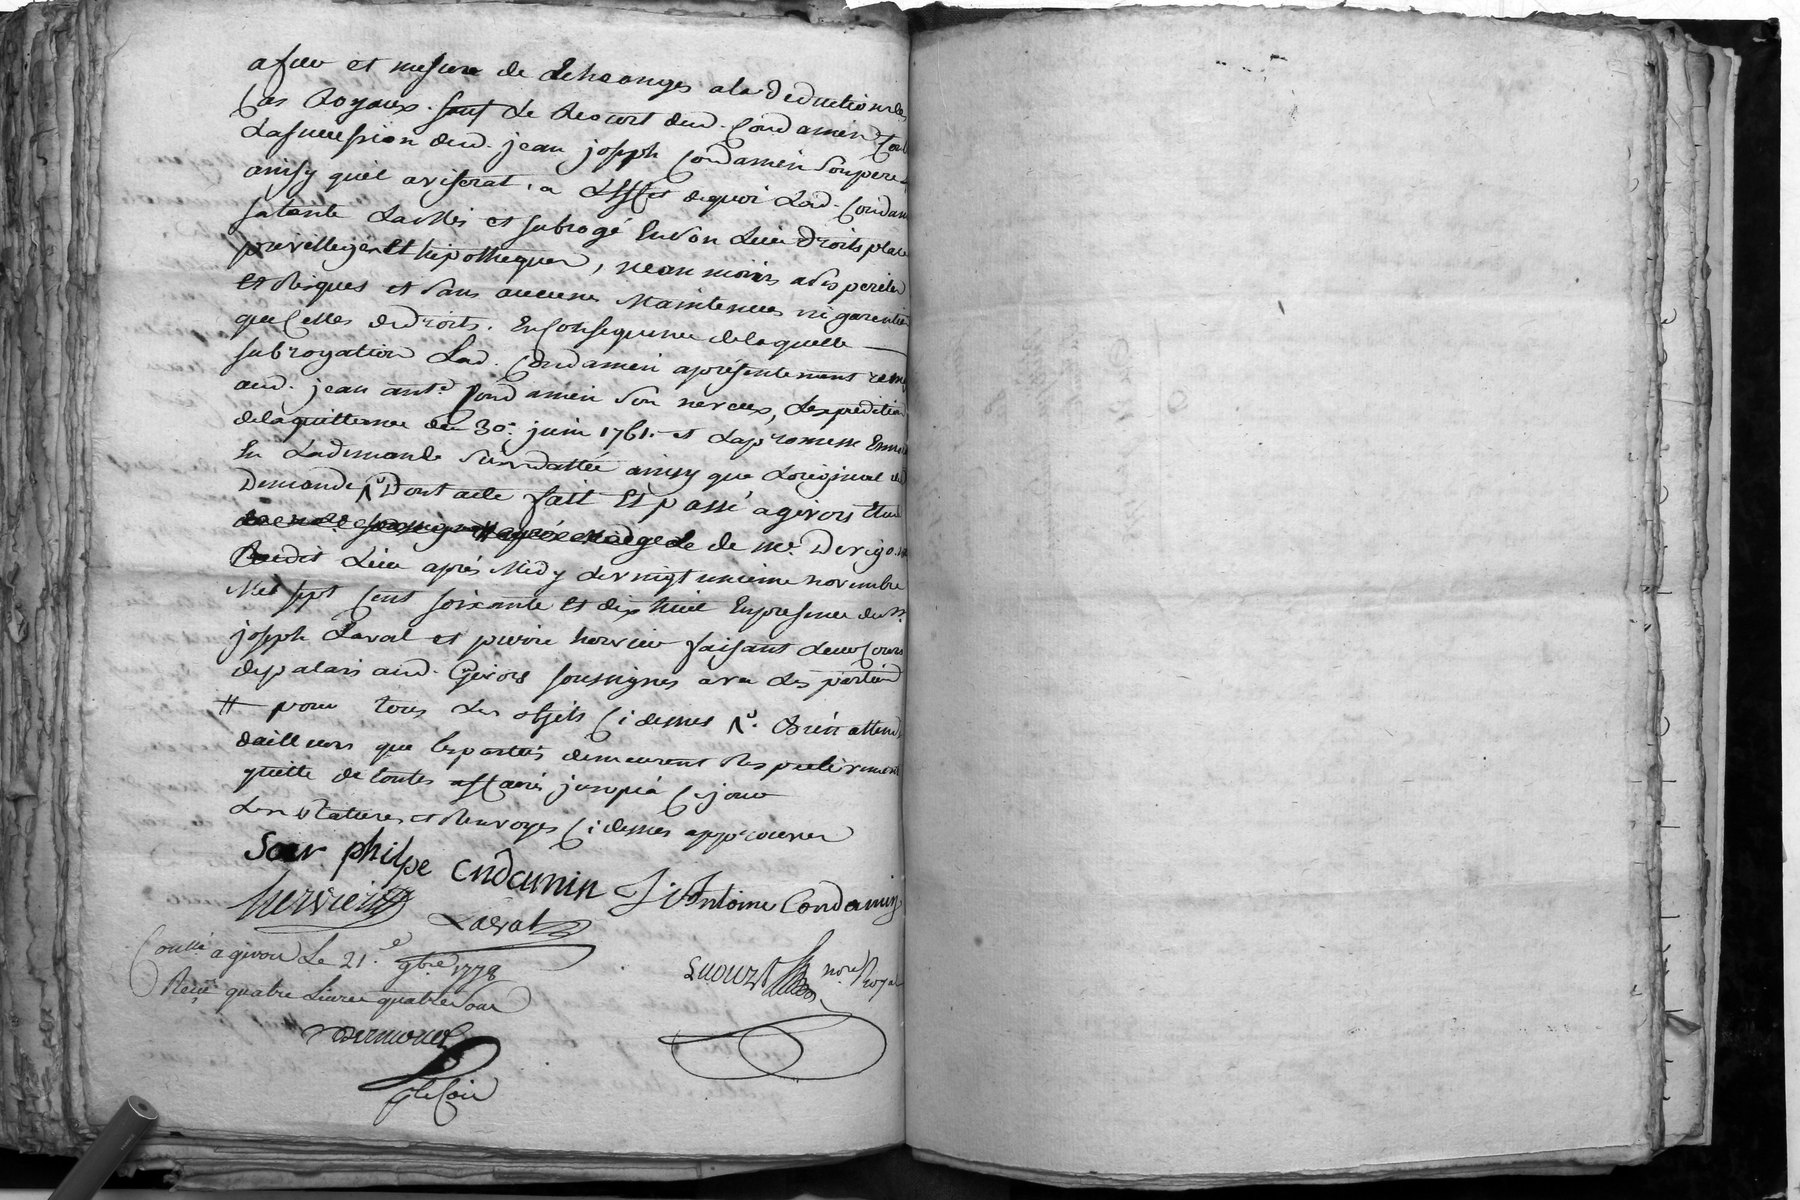 a fur et mesure de Echeanges a la Deduction des
Cas Royaux. sauf Le Recourt dud. Condamin
La succession dud. jean joseph Condamin Son pere
ainsy quil aviserat, a Leffet de quoi Lad. Condam
sa tante La mis et subrogé En son Lieu Droits place
privilleges Et hipotheques, nean moins a ses perils
Et Risques et Sans aucunes Maintenues ni garentie
que Celles de Droits. En Consequence de laquelle
subrogation Lad. Condamin a présentement remis
aud. jean ant.e Condamin Son neveux, Lexpedition
de la quittance du 30.e juin 1761. et La promesse
En La demande Susdattée ainsy que Loriginal
Demande, Dont acte fait Et passé a givors Etude
de m.e
dit Lieu aprés Midy Le vingt unieme novembre
Mil sept Cent soixante Et dix huit En presence de S.rs
joseph Laval et pierre hervier faisant Leur Cours
de palais aud. Givors soussignes avec Les parties
# pour tous Les objets Ci dessus Bien attendu
dailleurs que les parties demeurent Respectivement
quitte de toutes affaires jusqu'à Ce jour
Les Ratures et Renvoyes Ci dessus approuves
Soeur philipe Cndamin J: Antoine Condamin
hervier Laval
Conllé a givors Le 21.e 9bre 1778
Reçu quatre Livres quatre Sous
nore Royal